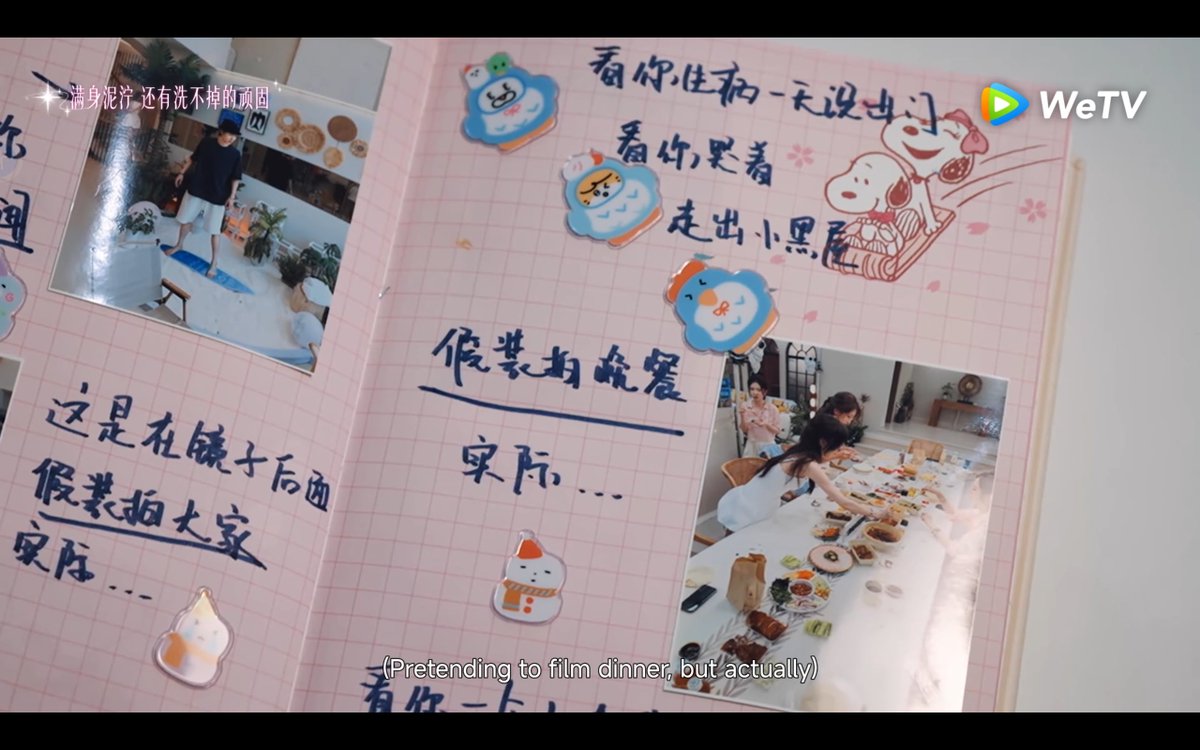 满身泥泞 还有洗不掉的顽固
WeTV
你
这是在镜子后面
假装拍大家
实际...
看你生病一天没出门
看你哭着
走出小黑屋
假装拍晚餐
实际...
看你一
(Pretending to film dinner, but actually)